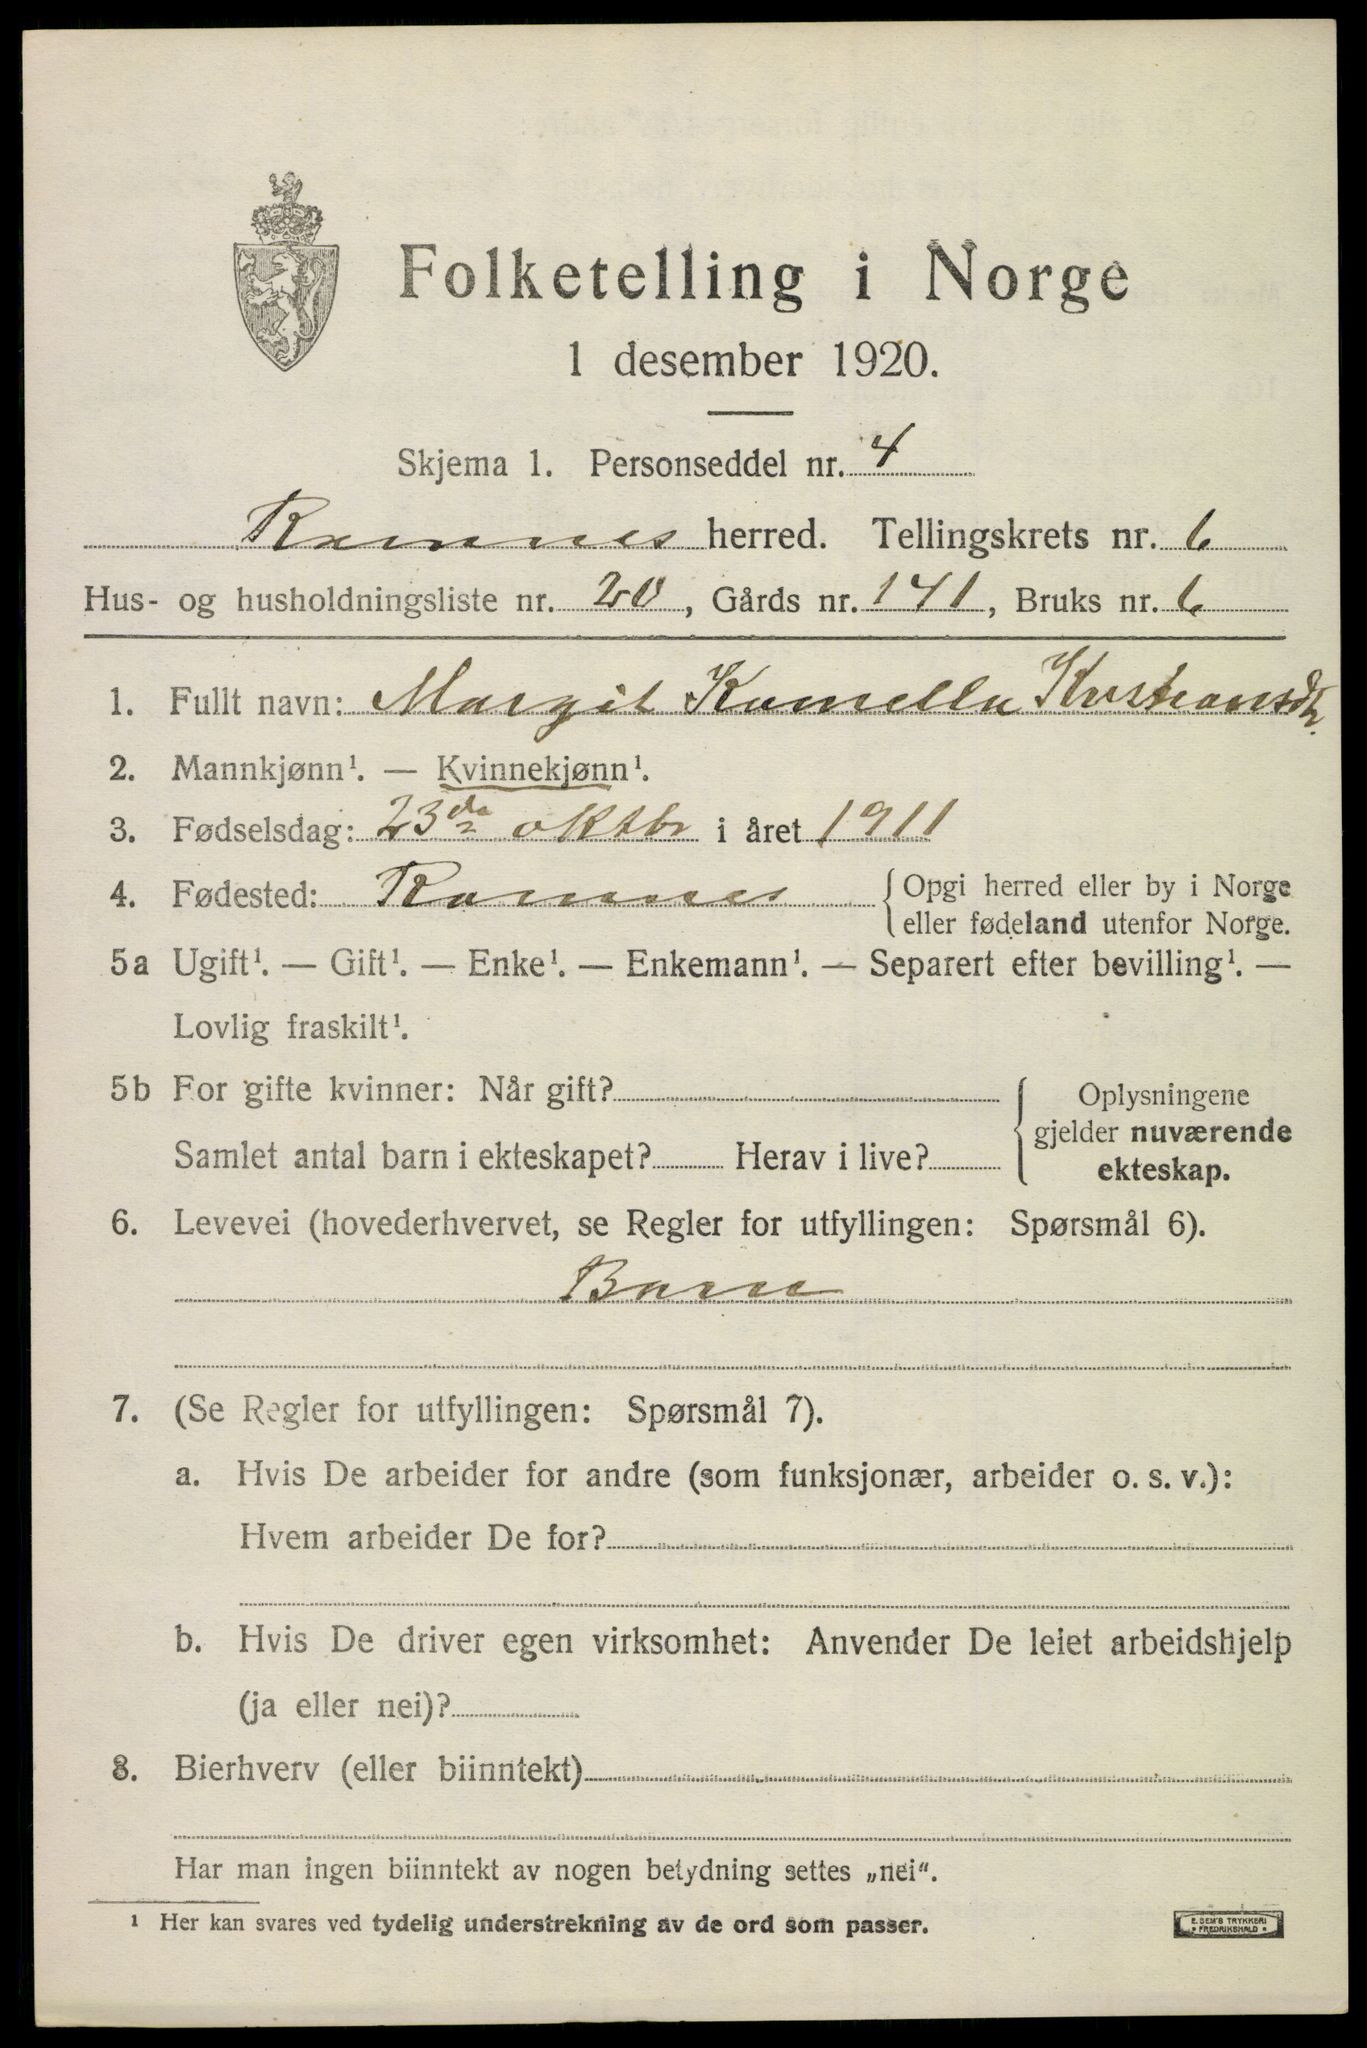 Folketelling i Norge
1 desember 1920.
Skjema 1. Personseddel nr. 4
Ramnes herred. Tellingskrets nr. 6
Hus- og husholdningsliste nr. 20, Gårds nr. 141, Bruks nr. 6
1. Fullt navn: Margit Kamella Kristiansdtr.
2. Mannkjønn¹. — Kvinnekjønn¹.
3. Fødselsdag: 23de oktbr i året 1911
4. Fødested: Ramnes {Opgi herred eller by i Norge
eller fødeland utenfor Norge.
5a Ugift¹. — Gift¹. — Enke¹. — Enkemann¹. — Separert efter bevilling¹. —
Lovlig fraskilt¹.
5b For gifte kvinner: Når gift? Oplysningene
gjelder nuværende
Samlet antal barn i ekteskapet? Herav i live? ekteskap.
6. Levevei (hovederhvervet, se Regler for utfyllingen: Spørsmål 6).
Barn
7. (Se Regler for utfyllingen: Spørsmål 7).
a. Hvis De arbeider for andre (som funksjonær, arbeider o. s. v.):
Hvem arbeider De for?
b. Hvis De driver egen virksomhet: Anvender De leiet arbeidshjelp
(ja eller nei)?
8. Bierhverv (eller biinntekt)
Har man ingen biinntekt av nogen betydning settes „nei“.
¹ Her kan svares ved tydelig understrekning av de ord som passer.
E. SEM'S TRYKKERI
• FREDRIKSHALD •